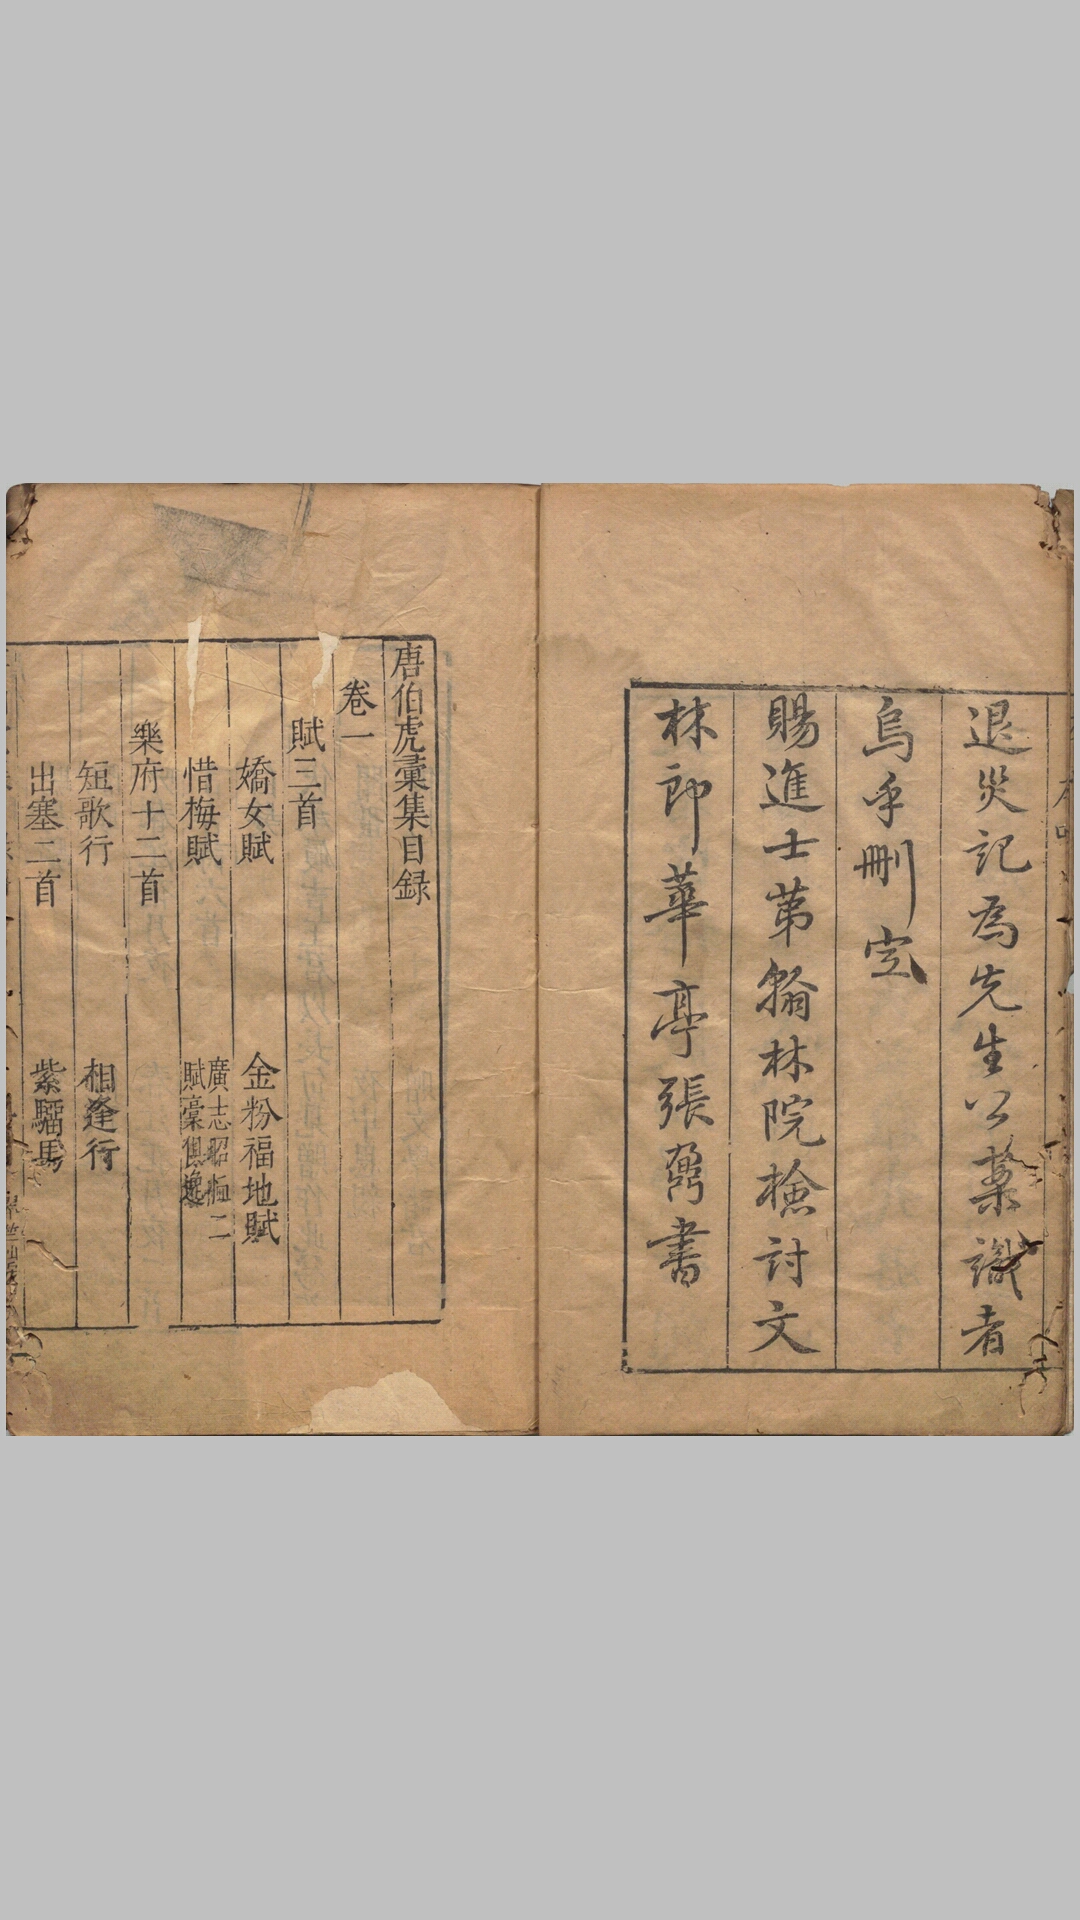 退災記為先生公藁識者
烏乎刪定
賜進士第翰林院檢討文
林郎華亭張鼐書
唐伯虎彙集目録
卷一
賦三首
嬌女賦　金粉福地賦
惜梅賦　廣志昭恤二
賦藁俱逸
樂府十二首
短歌行　相逢行
出塞二首　紫騮馬